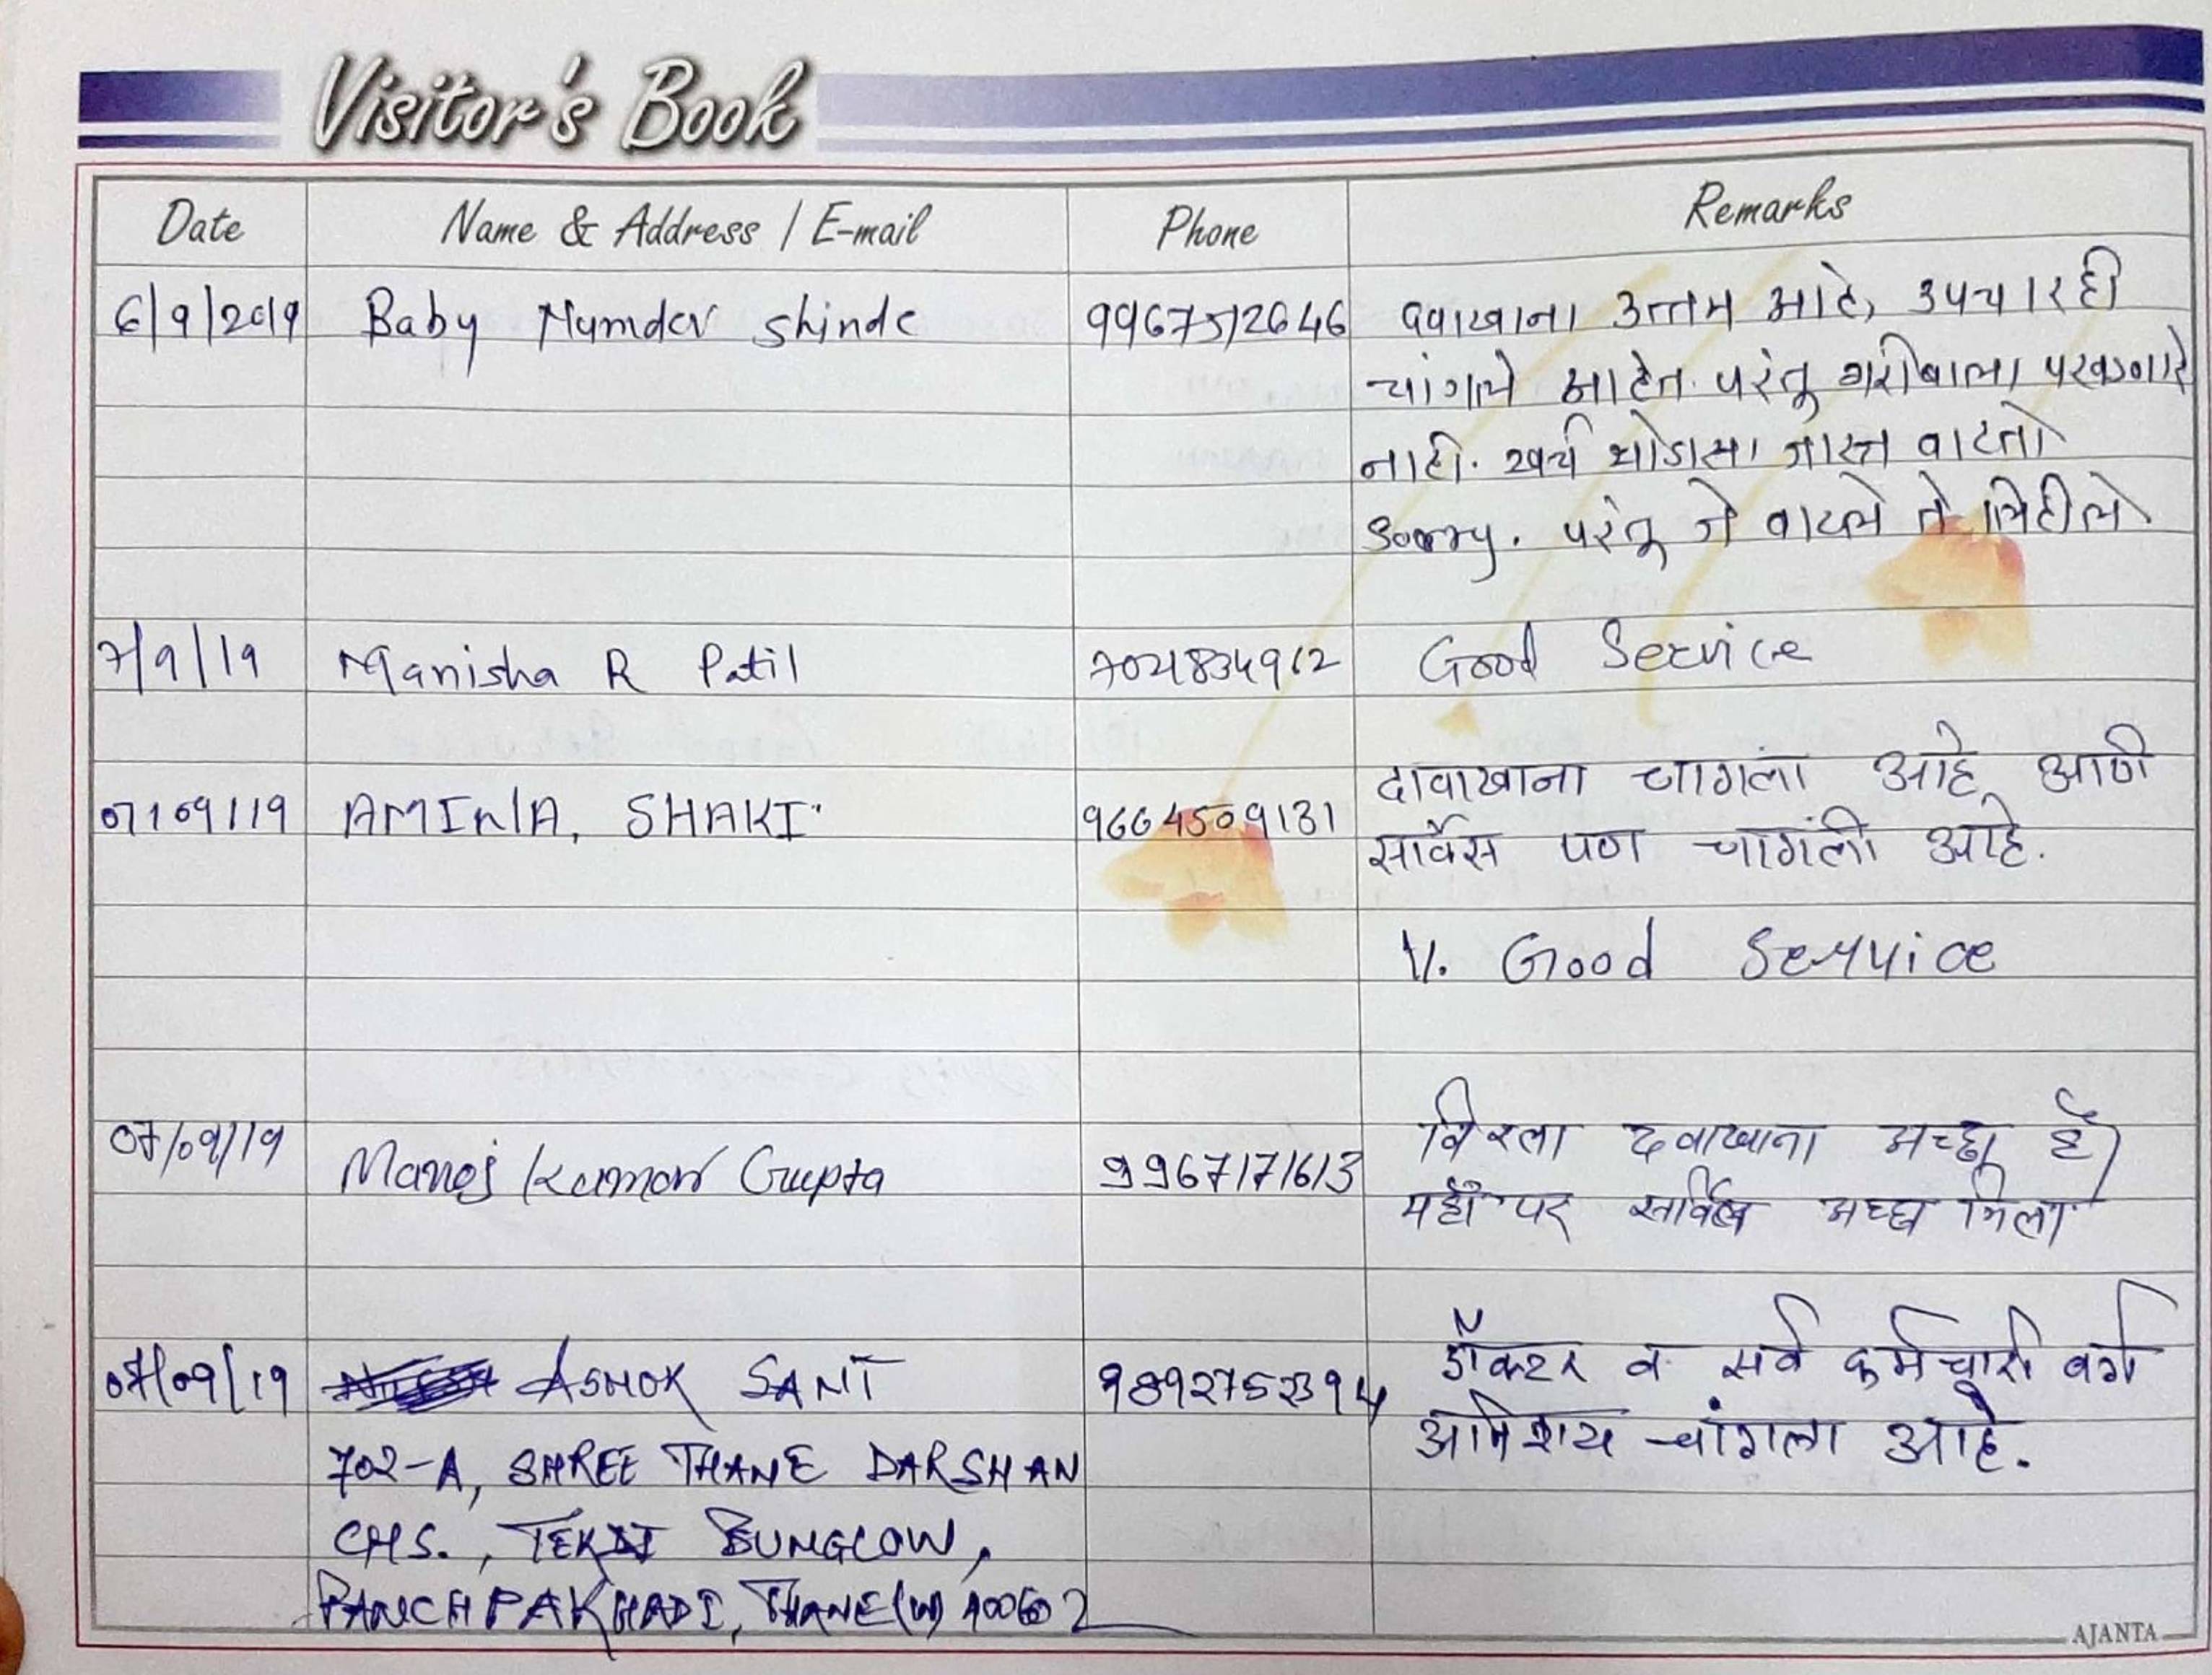 Visitor's Book
Date Name & Address / E-mail Phone Remarks
6/9/2019 Baby Namdev shinde 9967512646 दवाखाना उत्तम आहे, उपचारही
चांगले आहेत. परंतू गरीबाला परवडणारे
नाही. खर्च थोडासा जास्त वाटतो
Sorry. परंतू जे वाटले ते लिहीले
7/9/19 Manisha R Patil 7021834912 Good Service
दावाखाना चागला आहे आणी
07/09/19 AMINA, SHAKI. 9664509131
सार्वेस पण चागंली आहे.
V. Good Service
07/09/19 Manoj Kumar Gupta 9967171613 बिरला दवाखाना अच्छा है।
यहाँ पर सर्विस अच्छा मिला
07/09/19 ASHOK SANT 9892752394 डॉक्टर व सर्व कर्मचारी वर्ग
702-A, SHREE THANE DARSHAN अतिशय चांगला आहे.
CHS., TEKDI BUNGLOW,
PANCHPAKHADI, THANE (W) 400602
AJANTA